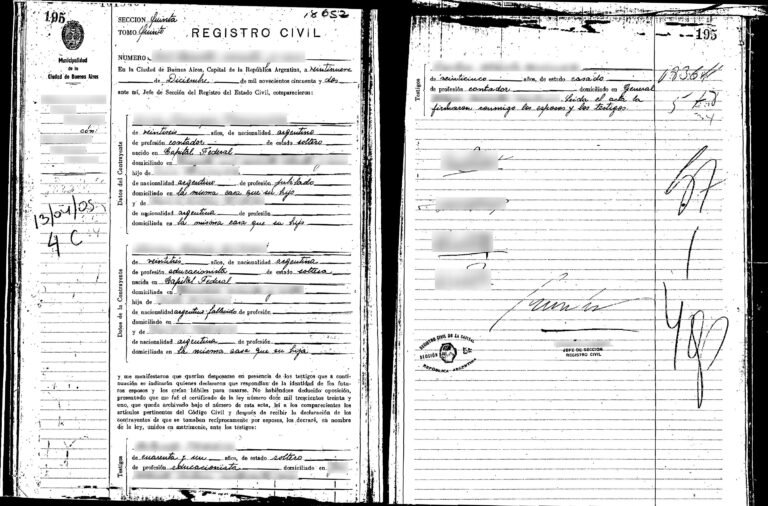 195
Municipalidad
de la
Ciudad de Buenos Aires
cón
13/04/05
4 C
SECCION Quinta
TOMO Quinto
18652
REGISTRO CIVIL
NUMERO
En la Ciudad de Buenos Aires, Capital de la República Argentina, a veintinueve
de Diciembre de mil novecientos cincuenta y dos
ante mí, Jefe de Sección del Registro del Estado Civil, comparecieron:
Datos del Contrayente
de veintiseis años, de nacionalidad argentino
de profesión contador de estado soltero
nacido en Capital Federal
domiciliado en
hijo de
de nacionalidad argentino de profesión jubilado
domiciliado en la misma casa que su hijo
y de
de nacionalidad argentina de profesión
domiciliada en la misma casa que su hijo
Datos de la Contrayente
de veintitrés años, de nacionalidad argentina
de profesión educacionista de estado soltera
nacida en Capital Federal
domiciliada en
hija de
de nacionalidad argentino fallecido de profesión
domiciliado en
y de
de nacionalidad argentina de profesión
domiciliada en la misma casa que su hija
y me manifestaron que querían desposarse en presencia de los testigos que a conti-
nuación se indicarán quienes declararon que respondían de la identidad de los futu-
ros esposos y los creían hábiles para casarse. No habiéndose deducido oposición,
presentado que me fué el certificado de la ley número doce mil trescientos treinta y
uno, que queda archivado bajo el número de esta acta, leí a los comparecientes los
artículos pertinentes del Código Civil y después de recibir la declaración de los
contrayentes de que se tomaban recíprocamente por esposos, los declaré, en nombre
de la ley, unidos en matrimonio, ante los testigos:
Testigos
de cuarenta y un años, de estado soltero
de profesión educacionista domiciliado en
195
Testigos
de veinticinco años, de estado casado
de profesión contador domiciliado en General
Leída el acta la
firmaron conmigo los esposos y los testigos
JEFE DE SECCION
REGISTRO CIVIL
REGISTRO CIVIL DE LA CAPITAL
SECCIÓN 5a
REPUBLICA ARGENTINA